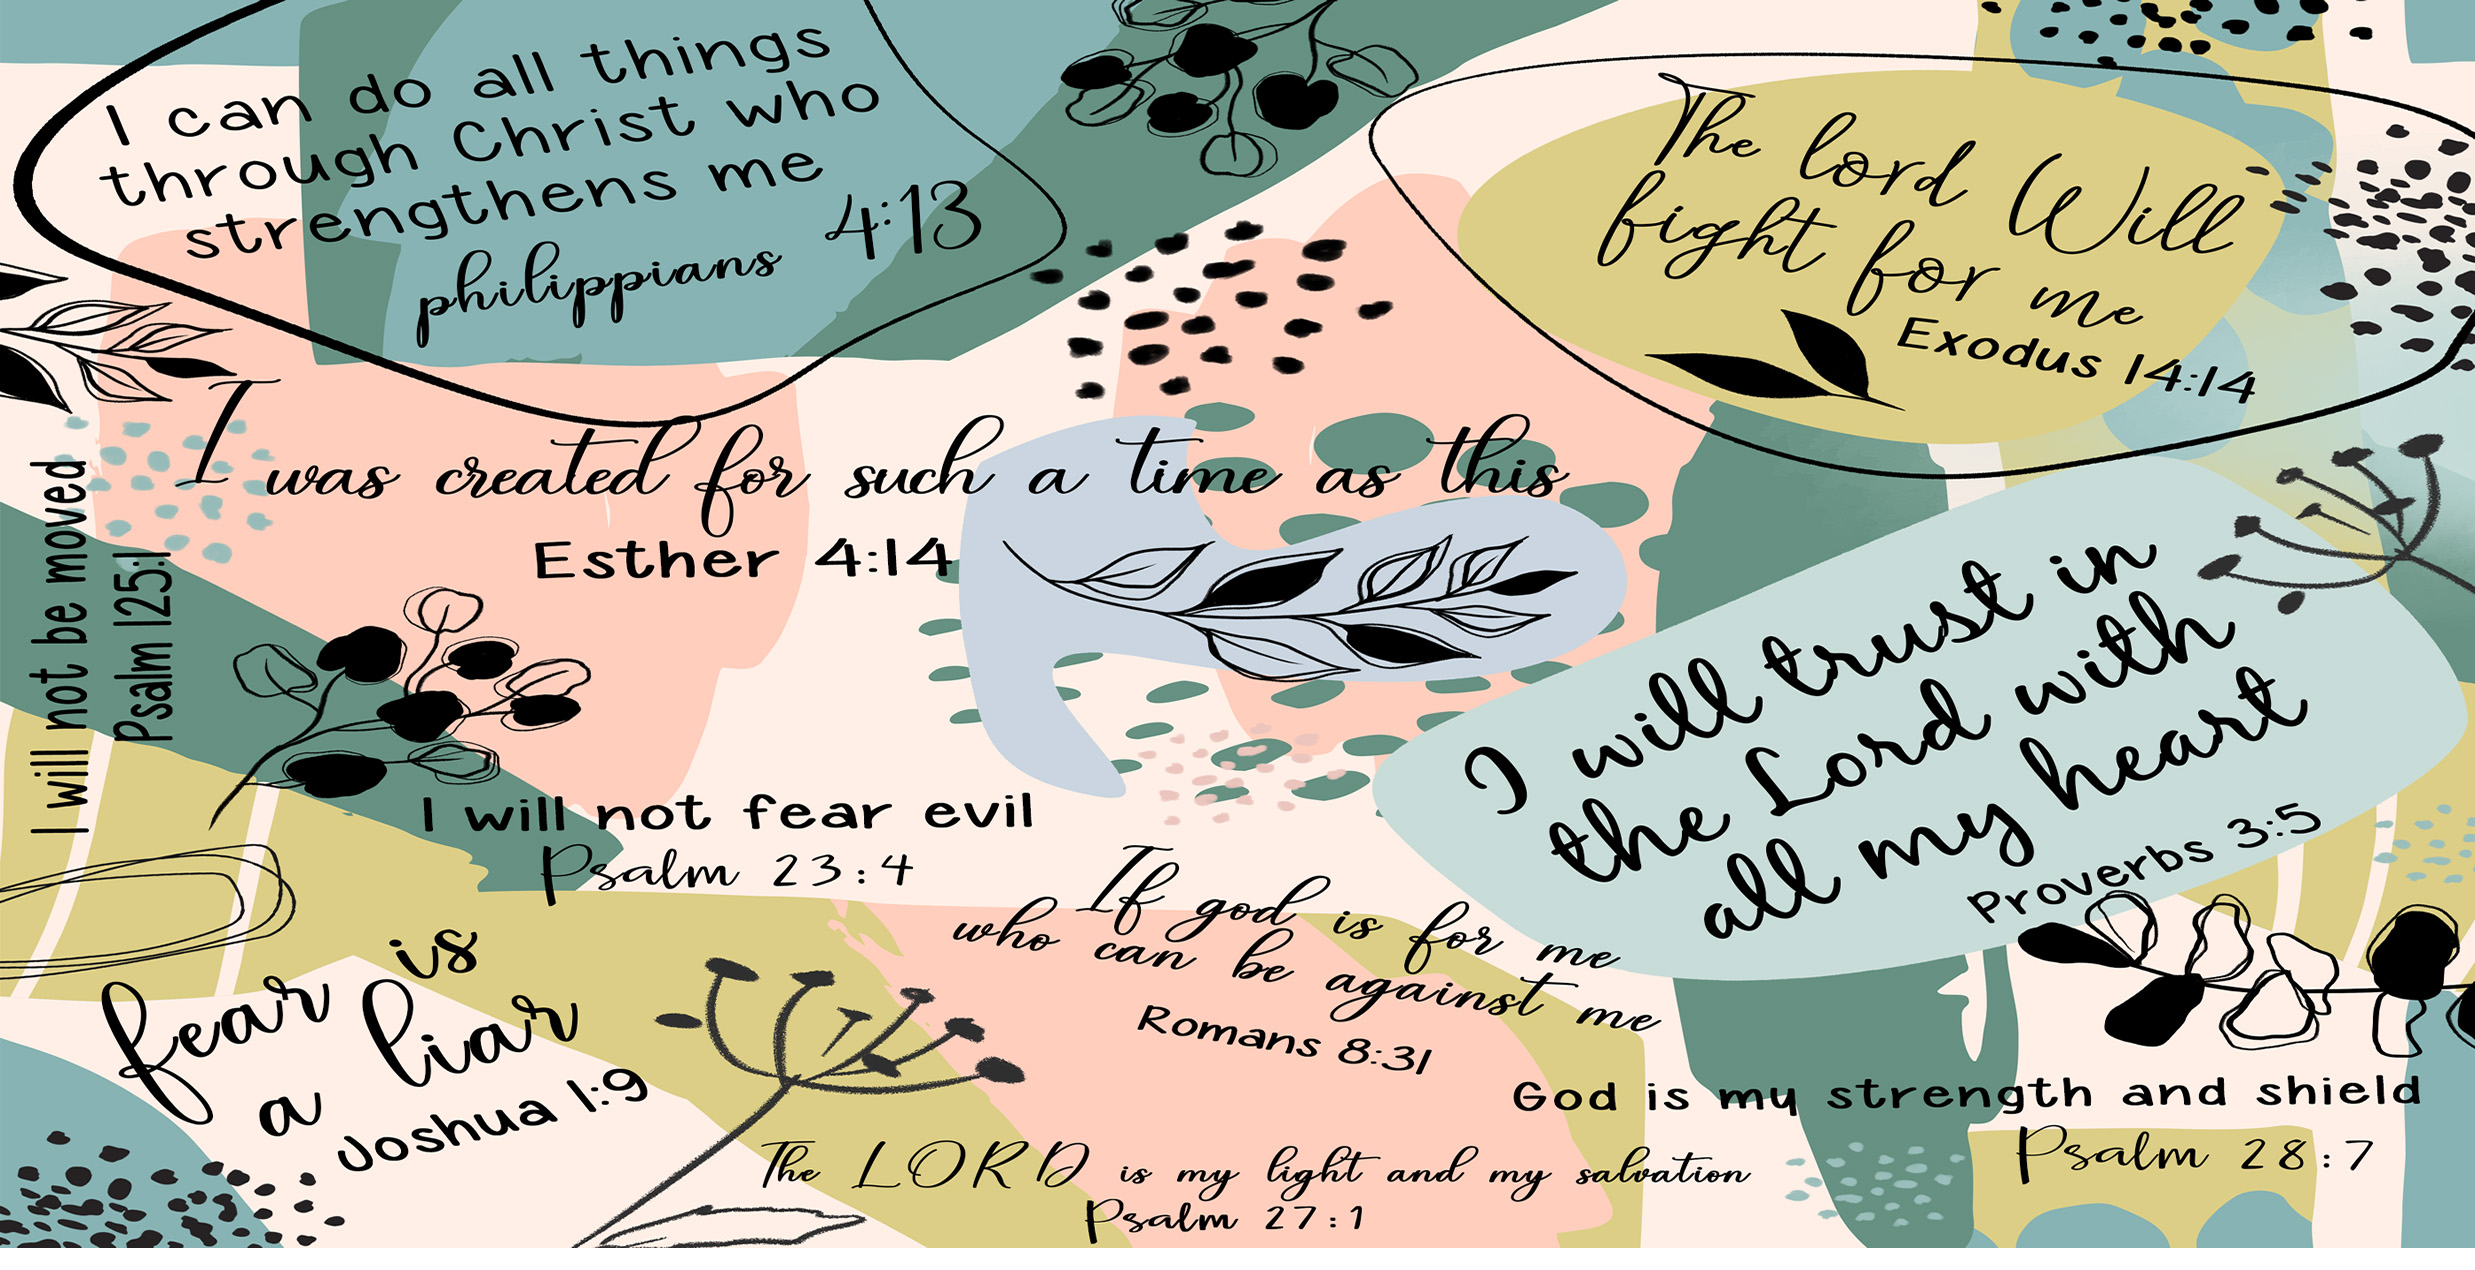 I can do all things
through Christ who
strengthens me
philippians 4:13
The lord Will
fight for me
Exodus 14:14
I was created for such a time as this
Esther 4:14
I will not be moved
Psalm 125:1
I will trust in
the Lord with
all my heart
Proverbs 3:5
I will not fear evil
Psalm 23:4
If god is for me
who can be against me
Romans 8:31
fear is
a liar
Joshua 1:9
God is my strength and shield
Psalm 28:7
The LORD is my light and my salvation
Psalm 27:1